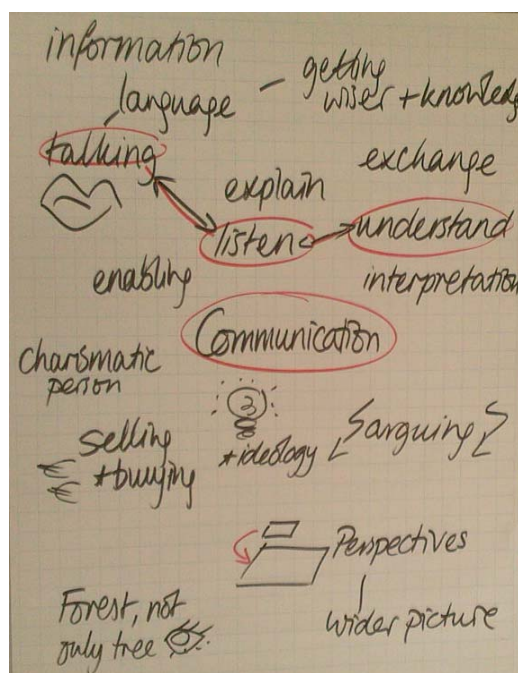 information
language - getting
wiser + knowledg
talking
exchange
explain
listen
understand
enabling
interpretation
Communication
charismatic
person
selling
+buying
*ideology
arguing
Perspectives
wider picture
Forest, not
only tree